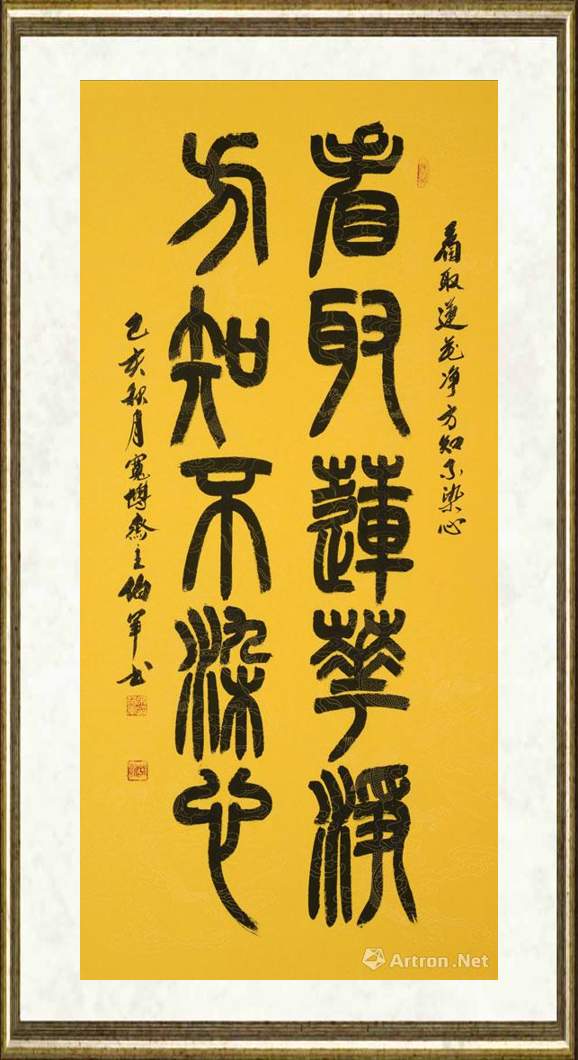 看取蓮華淨
方知不染心
看取蓮花净方知不染心
己亥秋月寬博齋主伯軍书
Artron.Net